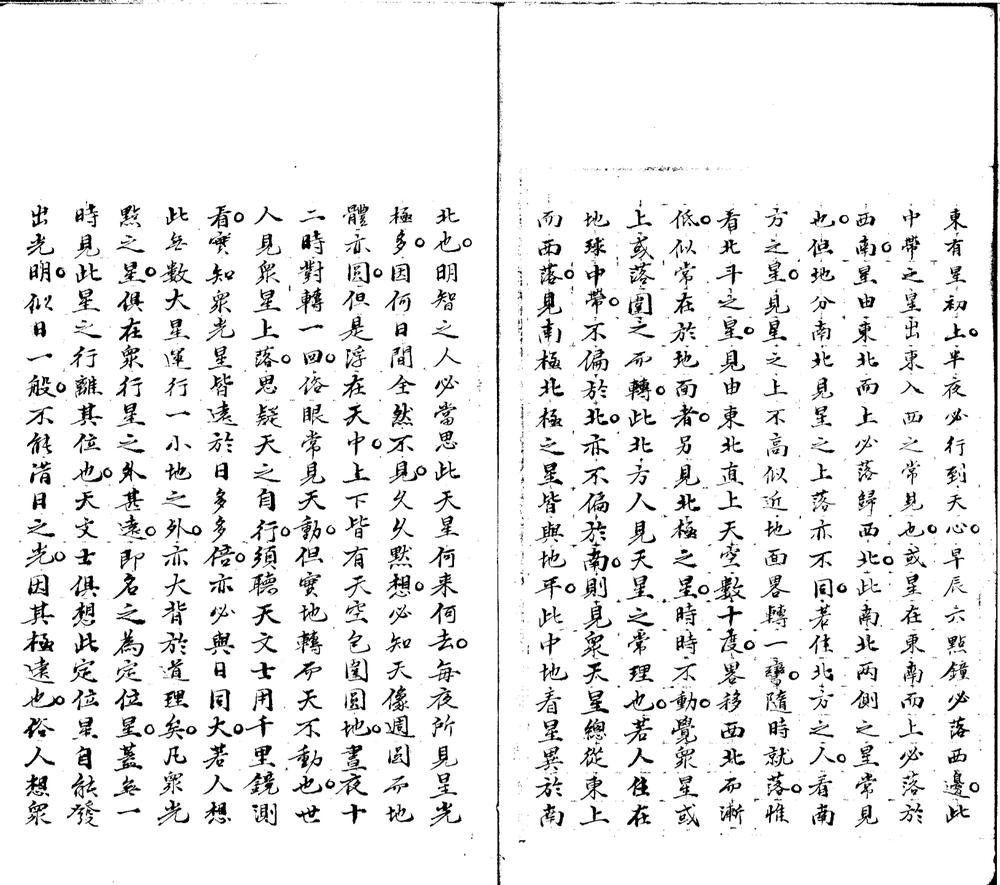 東有星初上半夜必行到天心早辰六點鐘必落西邊此
中帶之星出東入西之常見也或星在東南而上必落於
西南星由東北而上必落歸西北此南北两側之星常見
也但地分南北見星之上落亦不同若住北方之人看南
方之星見星之上不高似近地面畧轉一彎隨時就落惟
看北斗之星見由東北直上天空數十度畧移西北而漸
低似常在於地面者另見北極之星時時不動覺衆星或
上或落圍之而轉此北方人見天星之常理也若人住在
地球中帶不偏於北亦不偏於南則見衆天星總從東上
而西落見南極北極之星皆與地平此中地看星異於南
北也明智之人必當思此天星何来何去每夜所見星光
極多因何日間全然不見久久默想必知天像週圓而地
體亦圓但是浮在天中上下皆有天空包圍圓地晝夜十
二時對轉一回俗眼常見天動但實地轉而天不動也世
人見衆星上落思疑天之自行須聽天文士用千里鏡測
看實知衆光星皆遠於日多多倍亦必與日同大若人想
此無數大星運行一小地之外亦大背於道理矣凡衆光
點之星俱在衆行星之外甚遠即名之為定位星蓋無一
時見此星之行離其位也天文士俱想此定位星自能發
出光明似日一般不能借日之光因其極遠也俗人想衆